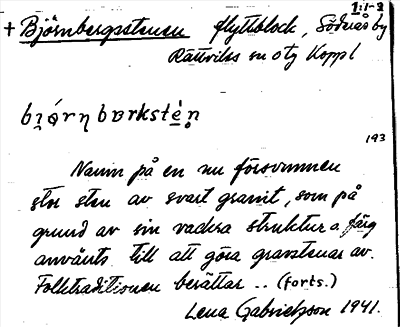 1:1-2
+ Björnbergsstenen flyttblock, Söderås by
Rättviks sn o tg Koppl
bi̯ǿ̜rn bɒrkstè̜n̥
193
Namn på en nu försvunnen
stor sten av svart granit, som på
grund av sin vackra struktur o. färg
använts till att göra gravstenar av.
Folktraditionen berättar .. (forts.)
Lena Gabrielsson 1941.